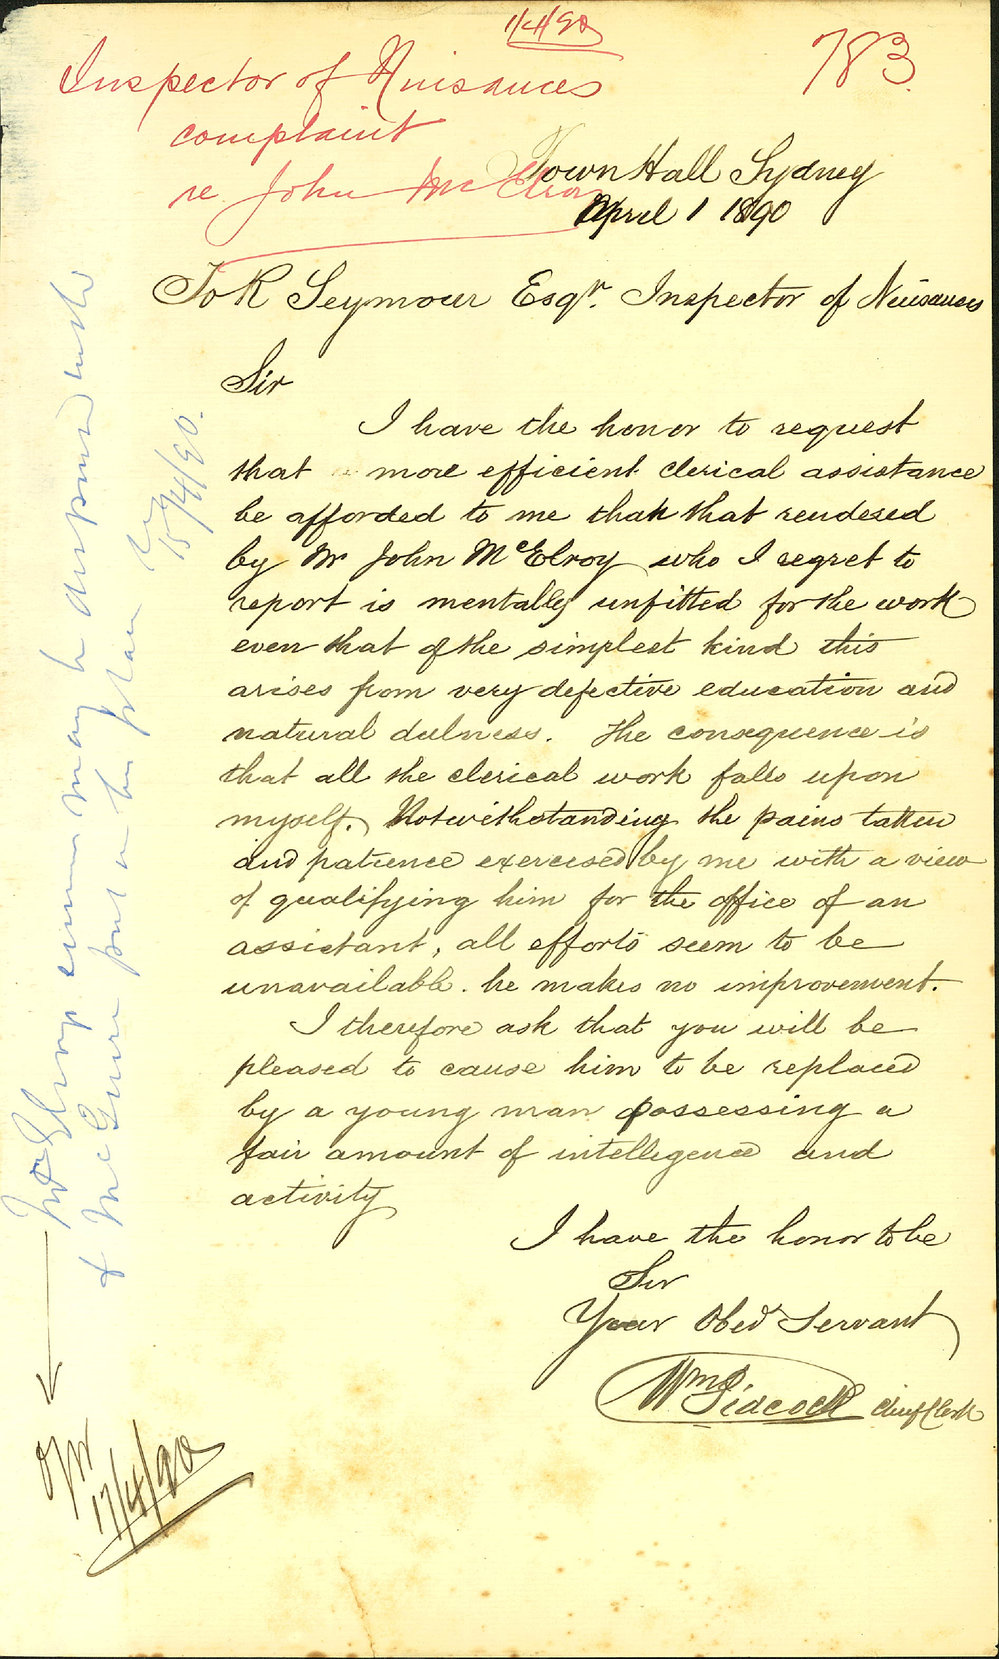 1/4/90
783
Inspector of Nuisances
complaint
re John McElroy
Town Hall Sydney
April 1 1890
To R Seymour Esqr. Inspector of Nuisances
Sir
I have the honor to request
that a more efficient clerical assistance
be afforded to me than that rendered
by Mr John McElroy who I regret to
report is mentally unfitted for the work
even that of the simplest kind this
arises from very defective education and
natural dulness. The consequence is
that all the clerical work falls upon
myself. Notwithstanding the pains taken
and patience exercised by me with a view
of qualifying him for the office of an
assistant, all efforts seem to be
unavailable. he makes no improvement.
I therefore ask that you will be
pleased to cause him to be replaced
by a young man possessing a
fair amount of intelligence and
activity
I have the honor to be
Sir
Your Obed Servant
Wm Pidcock Chief Clerk
McElroy's services may be dispensed with
& McGuire put in his place
15/4/90.
17/4/90